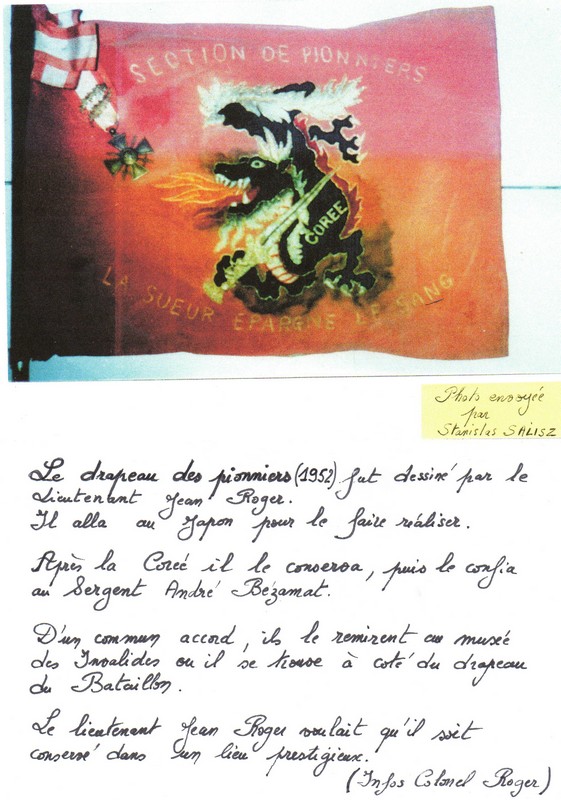 SECTION DE PIONNIERS
COREE
LA SUEUR EPARGNE LE SANG
Photo envoyée
par
Stanislas SALISZ
Le drapeau des pionniers (1952) fut dessiné par le
Lieutenant Jean Roger.
Il alla au Japon pour le faire réaliser.
Après la Coreé il le conserva, puis le confia
au Sergent André Bézamat.
D'un commun accord, ils le remirent au musée
des Invalides ou il se trouve à coté du drapeau
du Bataillon.
Le lieutenant Jean Roger voulait qu'il soit
conservé dans un lieu prestigieux.
(Infos Colonel Roger)